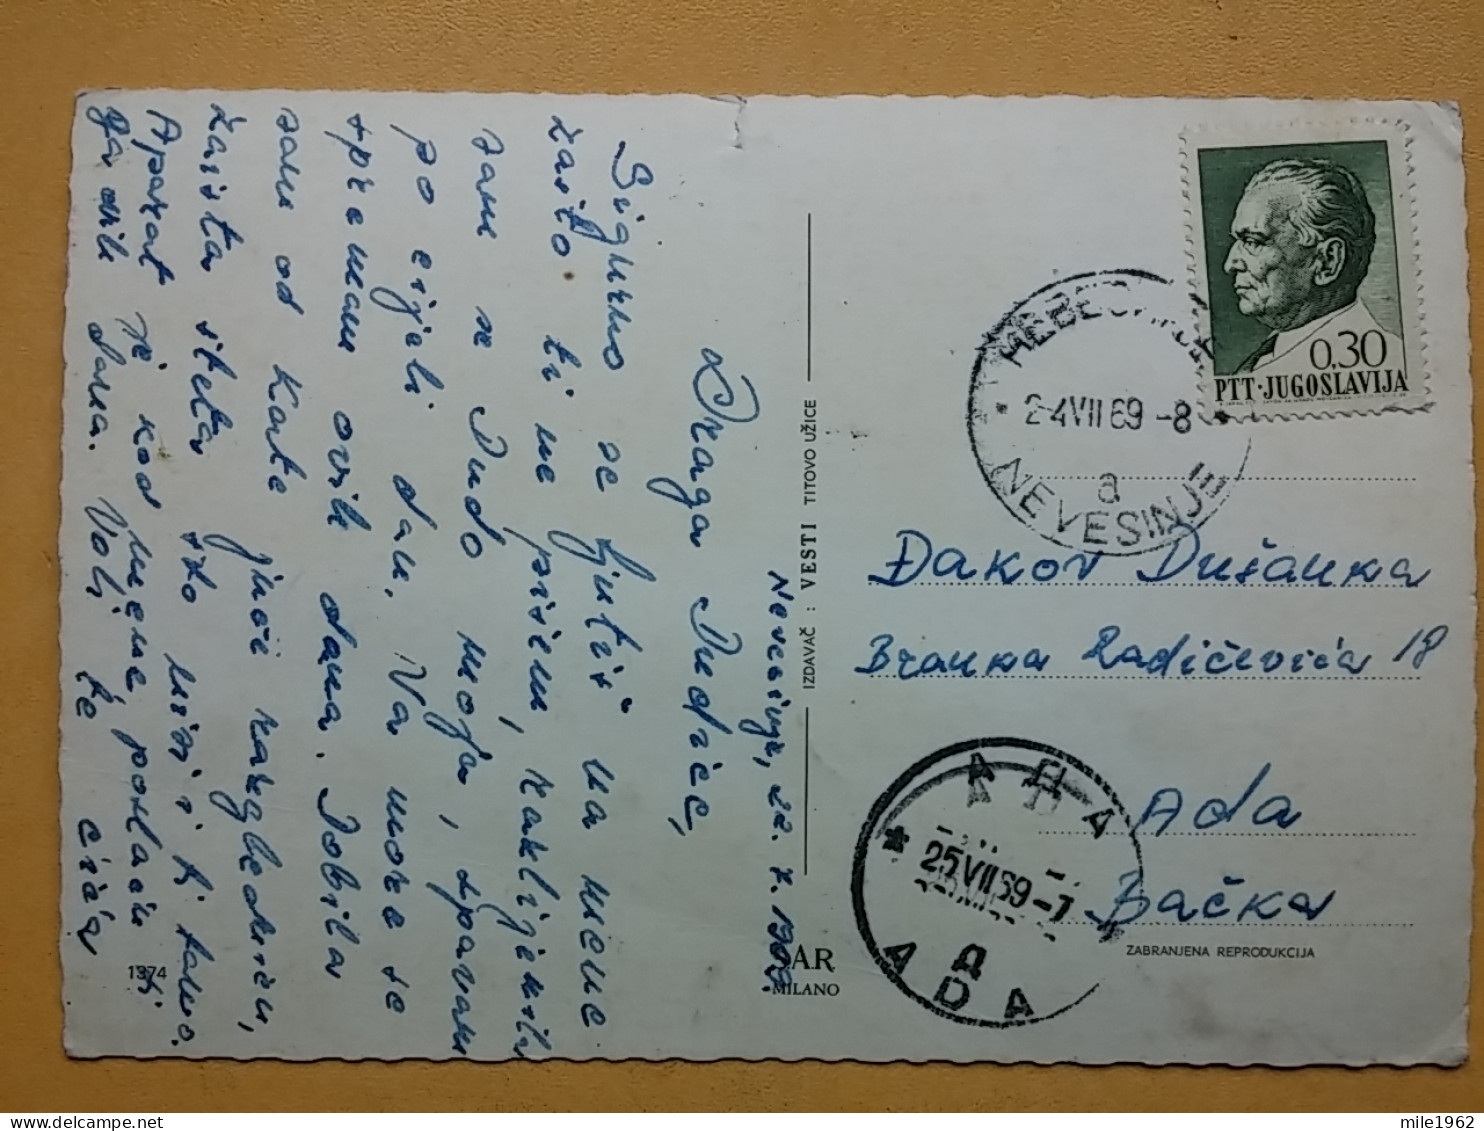 Nevesinje, 22. 7. 1969.
Draga Dudice,
Sigurno se ljutiš na mene
zašto ti ne pišem, kakli jekila
sam se Dudo moja, spavam
po cijeli dan. Na more se
spremam ovih dana. Dobila
sam od Kate jruči razglednicu,
zaista šteta što nisi i ti tamo.
Aparat je kod mene, poslaću ti
ga ovih dana. Voli te cića
1374
IZDAVAČ : VESTI TITOVO UŽICE
AR
MILANO
0,30
PTT · JUGOSLAVIJA
НЕВЕСИЊЕ
24 VII 69 -8
a
NEVESINJE
Đakov Dušanka
Branka Radičevića 18
Ada
Bačka
АДА
25 VII 69 -7
ADA
ZABRANJENA REPRODUKCIJA
mile1962